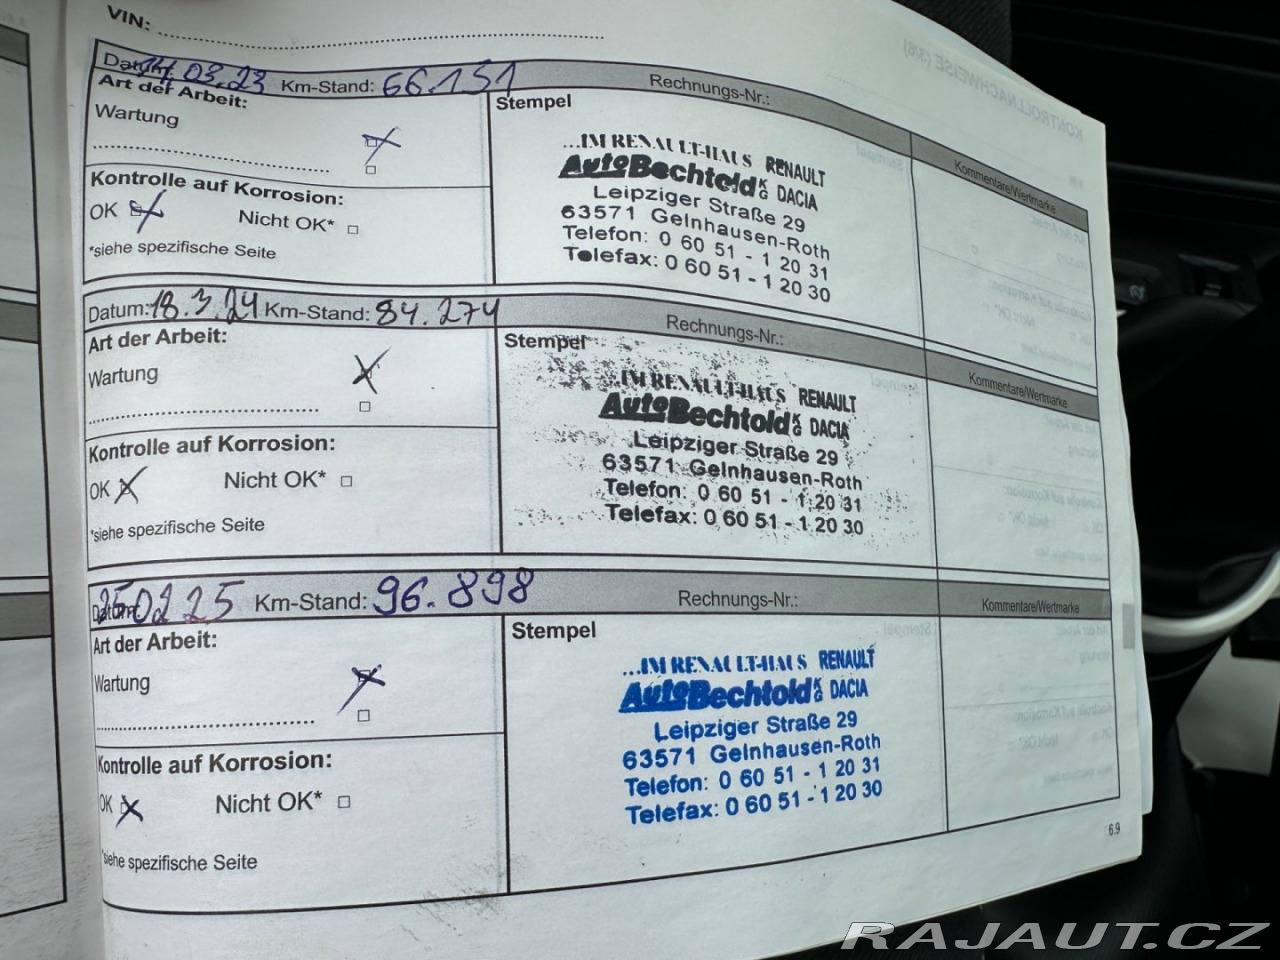 VIN:
Datum: 14.03.23 Km-Stand: 66.151 Rechnungs-Nr.:
Art der Arbeit:
Wartung
Kontrolle auf Korrosion:
OK Nicht OK*
*siehe spezifische Seite
Stempel
...IM RENAULT-HAUS RENAULT
Auto Bechtold KG DACIA
Leipziger Straße 29
63571 Gelnhausen-Roth
Telefon: 0 60 51 - 1 20 31
Telefax: 0 60 51 - 1 20 30
Kommentare/Wertmarke
Datum: 18.3.24 Km-Stand: 84.274 Rechnungs-Nr.:
Art der Arbeit:
Wartung
Kontrolle auf Korrosion:
OK Nicht OK*
*siehe spezifische Seite
Stempel
...IM RENAULT-HAUS RENAULT
Auto Bechtold KG DACIA
Leipziger Straße 29
63571 Gelnhausen-Roth
Telefon: 0 60 51 - 1 20 31
Telefax: 0 60 51 - 1 20 30
Kommentare/Wertmarke
Datum: 25.02.25 Km-Stand: 96.898 Rechnungs-Nr.:
Art der Arbeit:
Wartung
Kontrolle auf Korrosion:
OK Nicht OK*
*siehe spezifische Seite
Stempel
...IM RENAULT-HAUS RENAULT
Auto Bechtold KG DACIA
Leipziger Straße 29
63571 Gelnhausen-Roth
Telefon: 0 60 51 - 1 20 31
Telefax: 0 60 51 - 1 20 30
Kommentare/Wertmarke
6.9
KONTROLLNACHWEISE (3/6)
RAJAUT.CZ